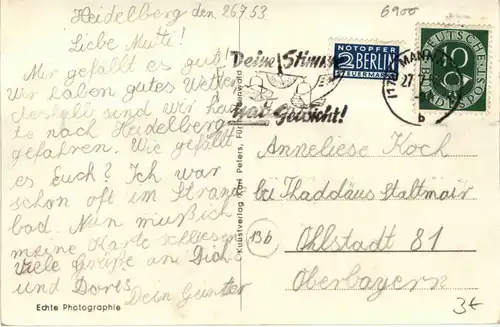 Heidelberg den 26.7.53
6900
Liebe Mutti!
Mir gefällt es gut!
Wir haben gutes Wetter
deshalb sind wir heu
te nach Heidelberg
gefahren. Wie gefällt
es Euch? Ich war
schon oft im Strand
bad. Nun muß ich
meine Karte schliesen
Viele Grüße an Dich
und Doris
Dein Günter
Echte Photographie
Kunstverlag Karl Peters, Fürth
Deine Stimme
hat Gewicht!
NOTOPFER
2 BERLIN
STEUERMARKE
MANNH
27.
b
DEUTSCHE POST
10
BUNDESPOST
Anneliese Koch
bei Thaddäus Staltmair
13b
Ohlstadt 81
Oberbayern
3€